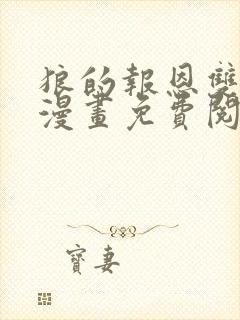 狼的報恩雙
漫畫免費閱
寶妻